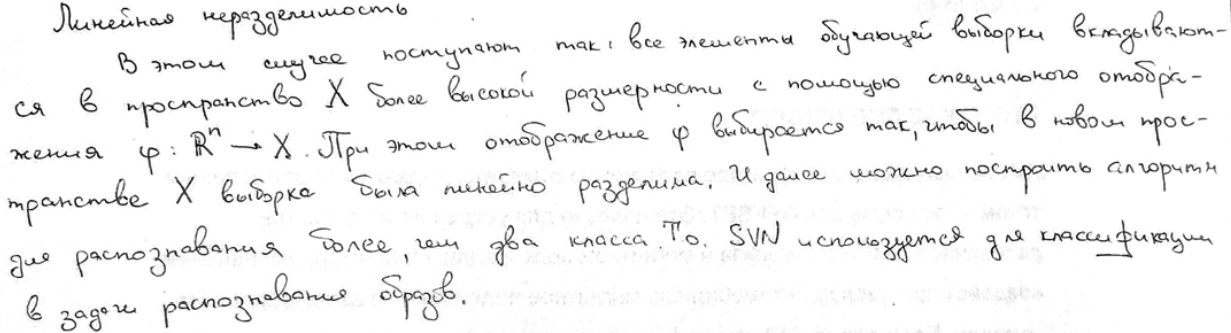 Линейная неразделимость
В этом случае поступают так: все элементы обучающей выборки вкладывают-
ся в пространство X более высокой размерности с помощью специального отобра-
жения φ: ℝⁿ → X. При этом отображение φ выбирается так, чтобы в новом прос-
транстве X выборка была линейно разделима. И далее можно построить алгоритм
для распознавания более чем два класса. Т.о. SVN используется для классификации
в задачи распознавания образов.